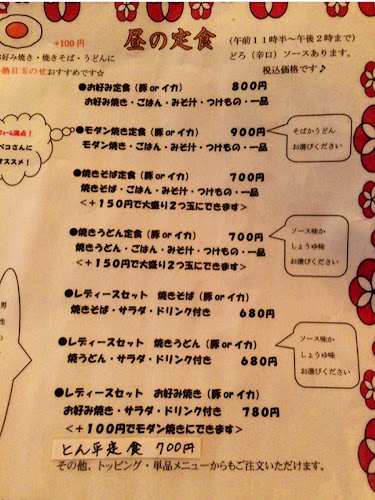 +100円
昼の定食
(午前11時半～午後2時まで)
お好み焼き・焼きそば・うどんに
どろ(辛口)ソースあります。
目玉のせおすすめです☆
税込価格です♪
●お好み定食(豚orイカ) 800円
お好み焼き・ごはん・みそ汁・つけもの・一品
●モダン焼き定食(豚orイカ) 900円
モダン焼き・ごはん・みそ汁・つけもの・一品
そばかうどん
お選びください
満点!
ペコさんに
オススメ!
●焼きそば定食(豚orイカ) 700円
焼きそば・ごはん・みそ汁・つけもの・一品
<+150円で大盛り2つ玉にできます>
●焼きうどん定食(豚orイカ) 700円
焼きうどん・ごはん・みそ汁・つけもの・一品
<+150円で大盛り2つ玉にできます>
ソース味か
しょうゆ味
お選びください
●レディースセット 焼きそば(豚orイカ)
焼きそば・サラダ・ドリンク付き 680円
●レディースセット 焼うどん(豚orイカ)
焼うどん・サラダ・ドリンク付き 680円
ソース味か
しょうゆ味
お選びください
男
性
●レディースセット お好み焼き(豚orイカ)
お好み焼き・サラダ・ドリンク付き 780円
<+100円でモダン焼きにできます>
とん平定食 700円
その他、トッピング・単品メニューからもご注文いただけます。